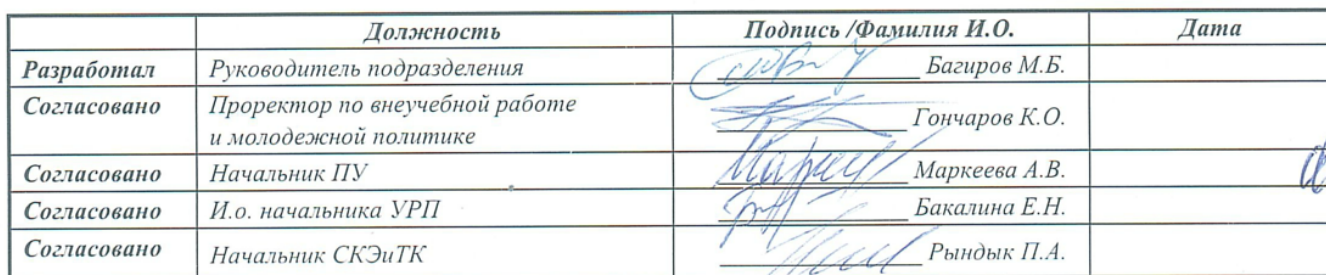 Должность Подпись /Фамилия И.О. Дата
Разработал Руководитель подразделения Багиров М.Б.
Согласовано Проректор по внеучебной работе
и молодежной политике Гончаров К.О.
Согласовано Начальник ПУ Маркеева А.В.
Согласовано И.о. начальника УРП Бакалина Е.Н.
Согласовано Начальник СКЭиТК Рындык П.А.